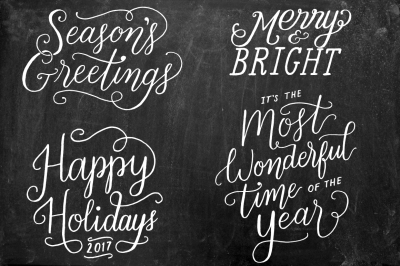 Season's
Greetings
Merry
&
BRIGHT
Happy
Holidays
2017
IT'S THE
Most
Wonderful
time OF THE
Year